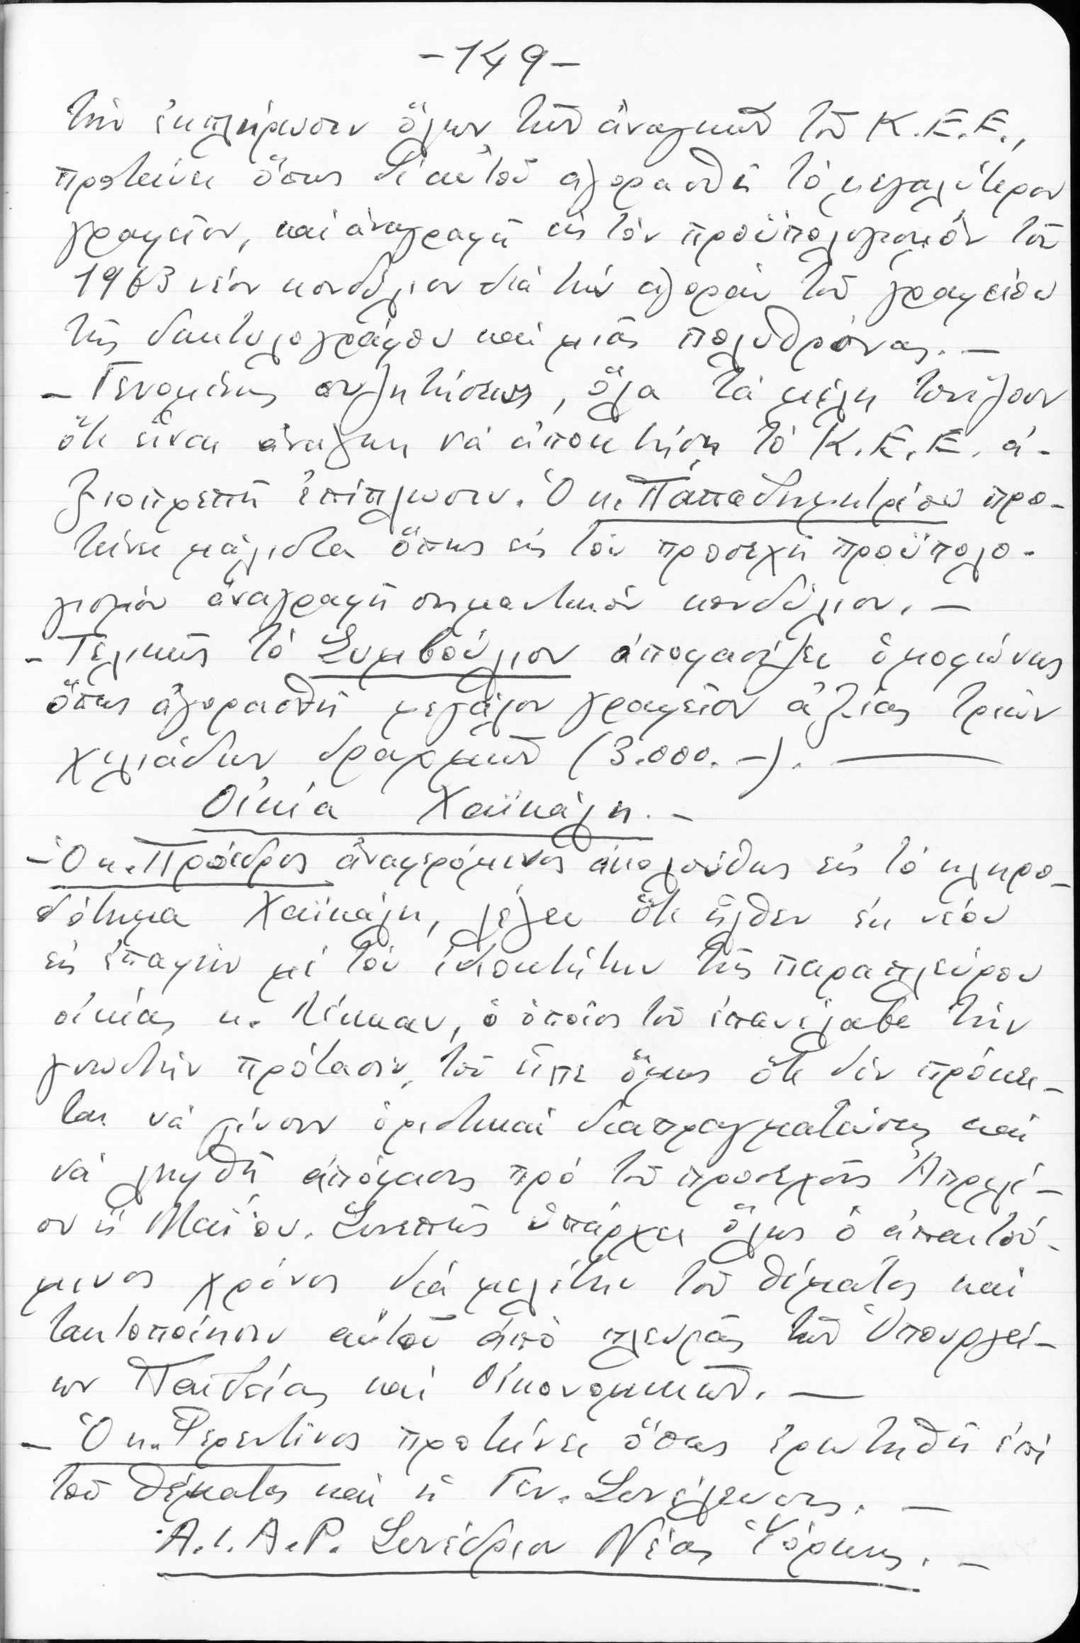 -149-
τὴν ἐκπλήρωσιν ὅλων τῶν ἀναγκῶν τοῦ Κ.Ε.Ε.,
προτείνει ὅπως δι' αὐτοῦ ἀγορασθῇ τὸ μεγαλύτερον
γραφεῖον, καὶ ἀναγραφῇ εἰς τὸν προϋπολογισμὸν τοῦ
1963 νέον κονδύλιον διὰ τὴν ἀγορὰν τοῦ γραφείου
τῆς δακτυλογράφου καὶ μιᾶς πολυθρόνας. —
- Γενομένης συζητήσεως, ὅλα τὰ μέλη τονίζουν
ὅτι εἶναι ἀνάγκη νὰ ἀποκτήσῃ τὸ Κ.Ε.Ε. ἀ-
ξιοπρεπῆ ἐπίπλωσιν. Ὁ κ. Παπαδημητρίου προ-
τείνει μάλιστα ὅπως εἰς τὸν προσεχῆ προϋπολο-
γισμὸν ἀναγραφῇ σημαντικὸν κονδύλιον. —
- Τελικῶς τὸ Συμβούλιον ἀποφασίζει ὁμοφώνως
ὅπως ἀγορασθῇ μεγάλον γραφεῖον ἀξίας τριῶν
χιλιάδων δραχμῶν (3.000.-). —
Οἰκία Χαϊκάλη. -
- Ὁ κ. Πρόεδρος ἀναφερόμενος ἀκολούθως εἰς τὸ κληρο-
δότημα Χαϊκάλη, λέγει ὅτι ἦλθεν ἐκ νέου
εἰς ἐπαφὴν μὲ τὸν ἰδιοκτήτην τῆς παραπλεύρου
οἰκίας κ., ὁ ὁποῖος τοῦ ἐπανέλαβε τὴν
γνωστὴν πρότασιν, τοῦ εἶπε ὅμως ὅτι δὲν πρόκει-
ται νὰ γίνουν ὁριστικαὶ διαπραγματεύσεις καὶ
νὰ ληφθῇ ἀπόφασις πρὸ τοῦ προσεχοῦς Ἀπριλί-
ου ἢ Μαΐου. Συνεπῶς ὑπάρχει ὅλος ὁ ἀπαιτού-
μενος χρόνος διὰ μελέτην τοῦ θέματος καὶ
τακτοποίησιν αὐτοῦ ἀπὸ πλευρᾶς τῶν Ὑπουργεί-
ων Παιδείας καὶ Οἰκονομικῶν. —
- Ὁ κ. Φερεντῖνος προτείνει ὅπως ἐρωτηθῇ ἐπὶ
τοῦ θέματος καὶ ἡ Γεν. Συνέλευσις. —
A.I.A.P. Συνέδριον Νέας Ὑόρκης. -